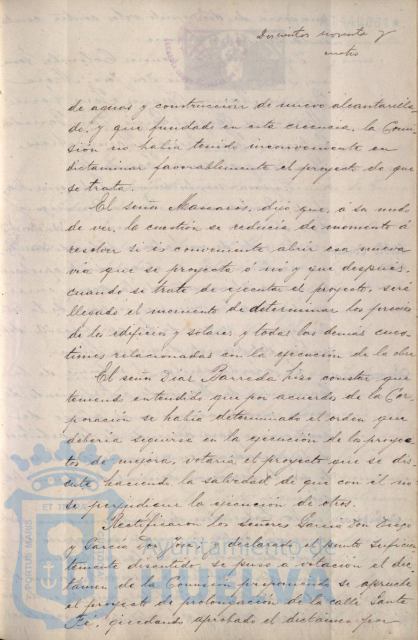 Doscientos noventa y
cuatro
de aguas y construcción de nuevo alcantarilla-
do, y que fundado en esta creencia, la Comi-
sión no había tenido inconveniente en
dictaminar favorablemente el proyecto de que
se trata.
El señor dijo que, á su modo
de ver, la cuestión se reducía de momento á
resolver si es conveniente abrir esa nueva
vía que se proyecta ó nó y que después,
cuando se trate de ejecutar el proyecto, será
llegado el momento de determinar los precios
de los edificios y solares y todas las demás cues-
tiones relacionadas con la ejecución de la obra
El señor Diaz Barreda hizo constar que
teniendo entendido que por acuerdo de la Cor-
poración se había determinado el orden que
debería seguirse en la ejecución de los proyec-
tos de mejora, votaría el proyecto que se dis-
cute haciendo la salvedad de que con él no
se perjudique la ejecución de otros.
Rectificaron los señores García Don Diego
y García Don y declarado el punto suficien-
temente discutido, se puso á votación el dic-
támen de la Comisión proponiendo se apruebe
el proyecto de prolongación de la calle Santa
Fé, quedando aprobado el dictamen por
PORTUS MARIS ET T
Ayuntamiento de
HUELVA